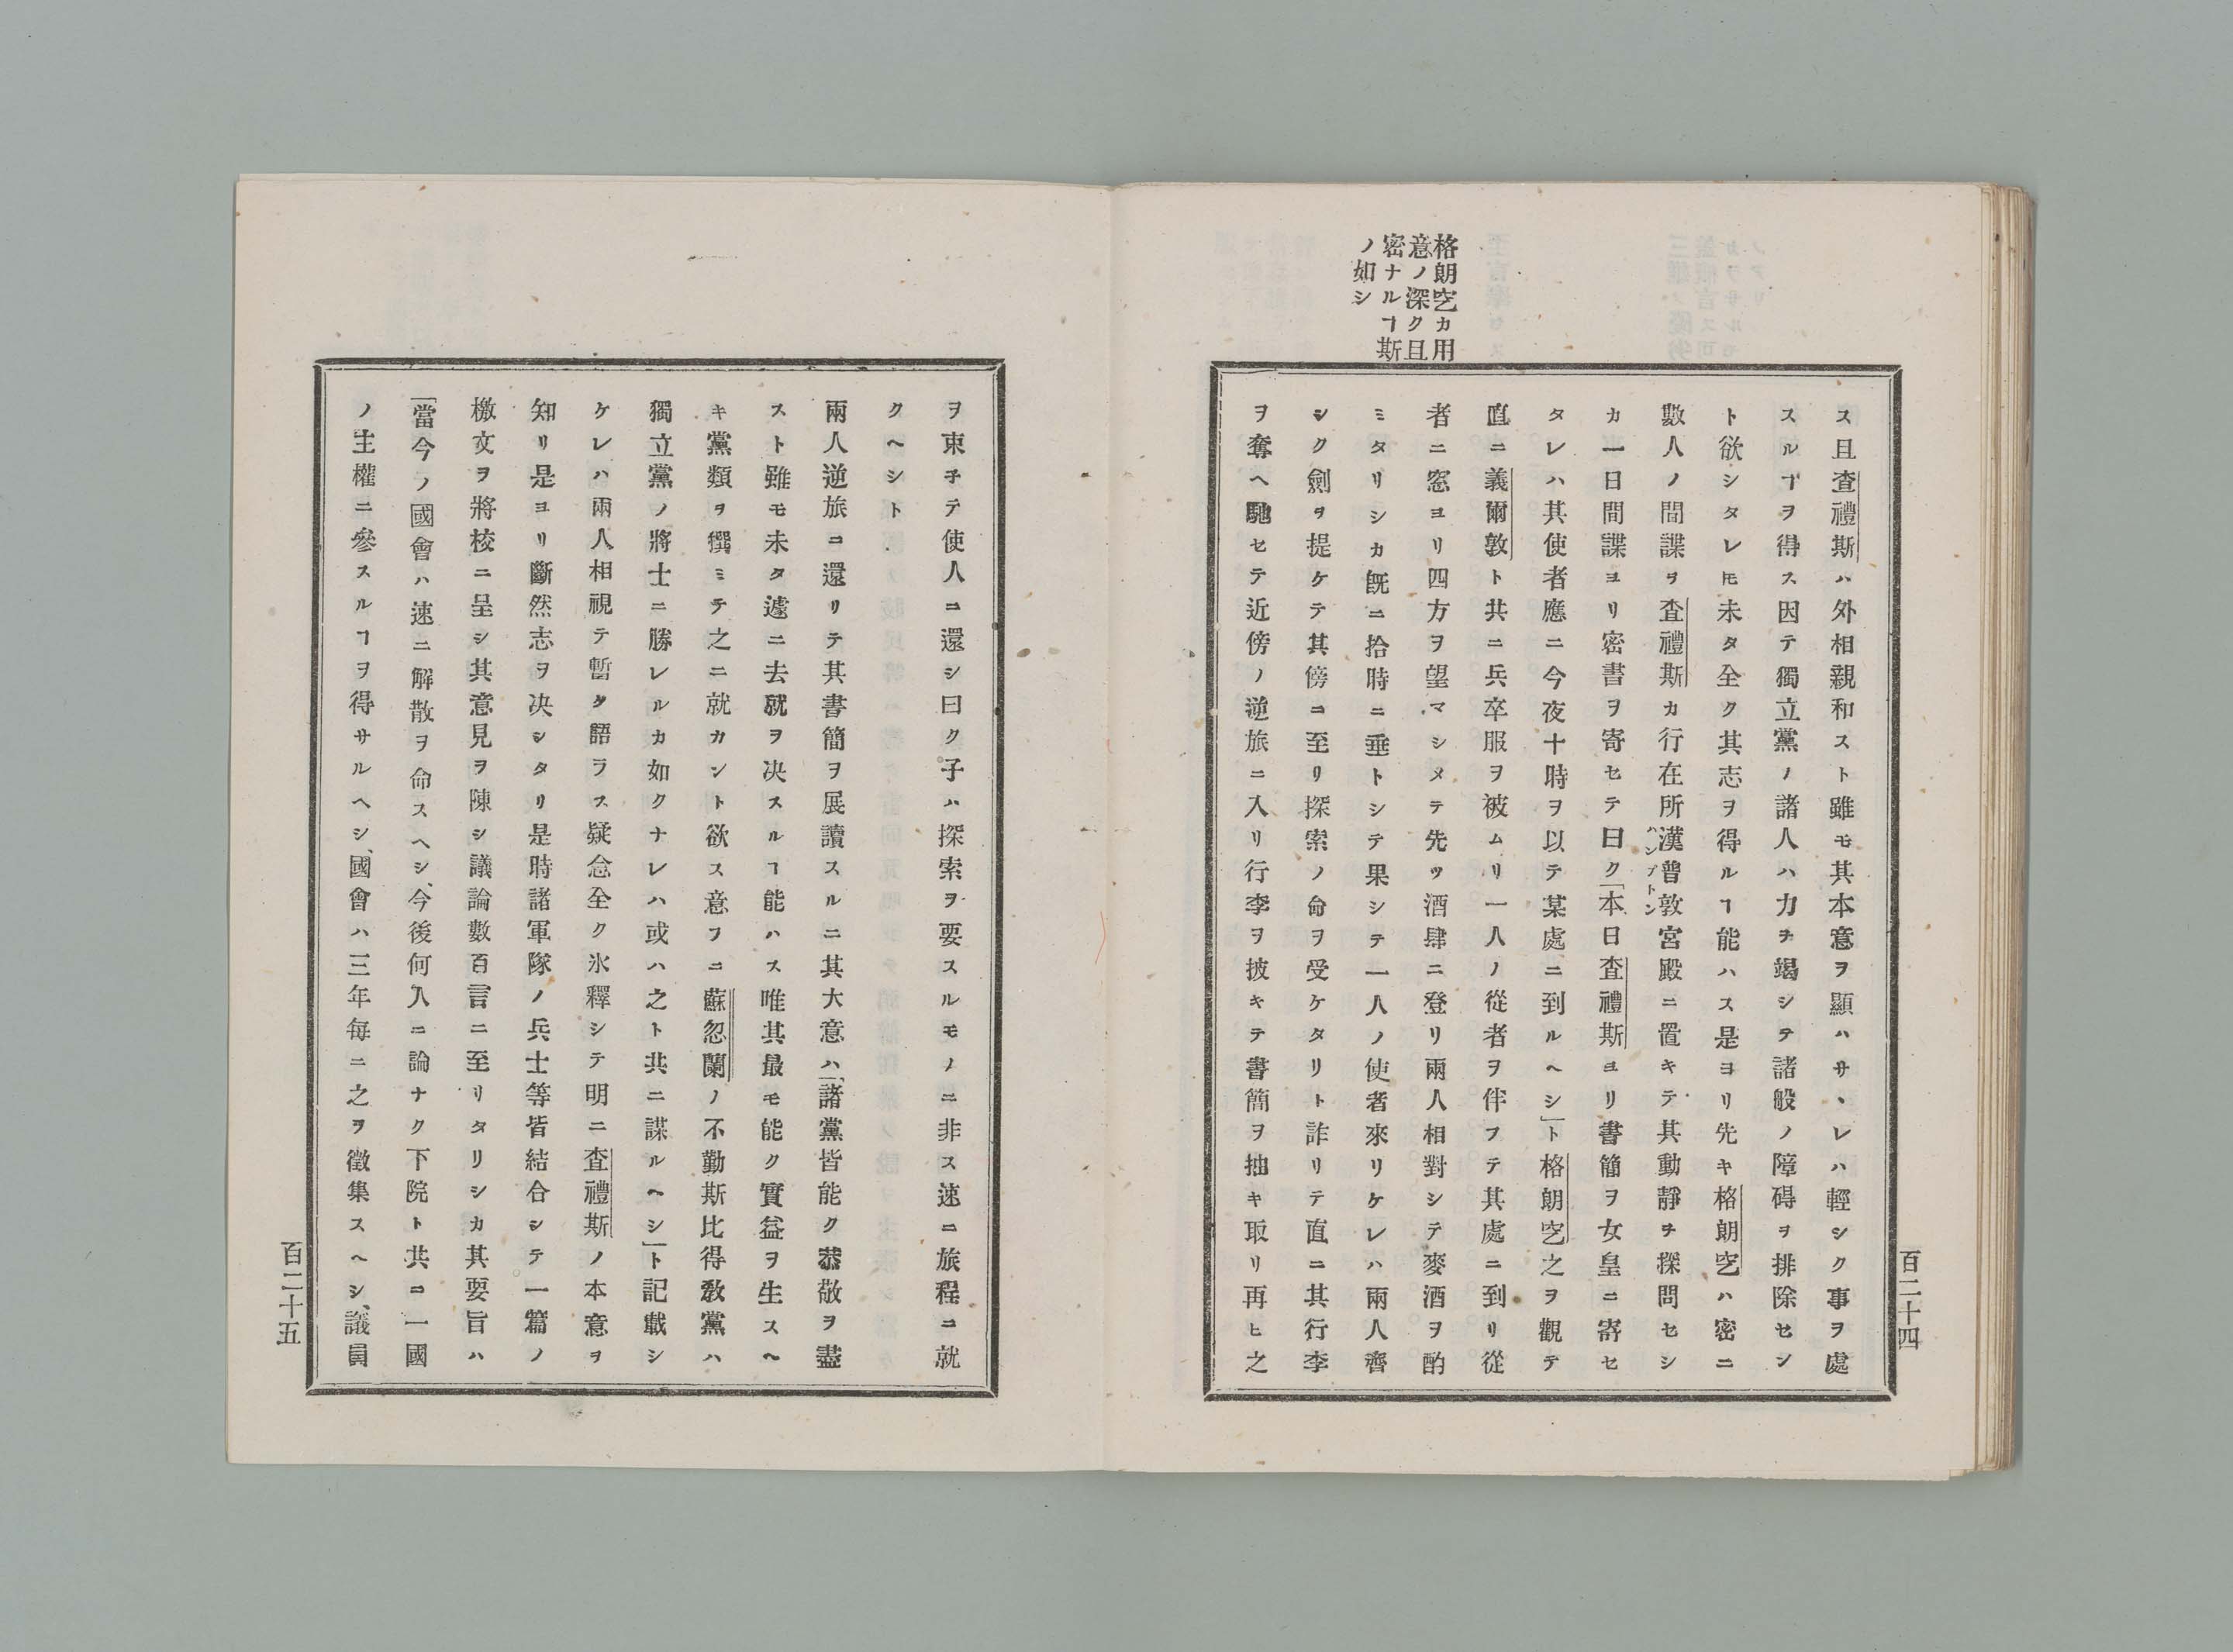 格朗空カ用
意ノ深ク且
密ナルヿ斯
ノ如シ
ス且査禮斯ハ外相親和スト雖モ其本意ヲ顯ハサヽレハ輕シク事ヲ處
スルヿヲ得ス因テ獨立黨ノ諸人ハ力ヲ竭シテ諸般ノ障碍ヲ排除セン
ト欲シタレ𪜈未タ全ク其志ヲ得ルヿ能ハス是ヨリ先キ格朗空ハ密ニ
數人ノ間諜ヲ査禮斯カ行在所漢普敦宮殿ニ置キテ其動靜ヲ探問セシ
ハンプトン
カ一日間諜ヨリ密書ヲ寄セテ曰ク「本日査禮斯ヨリ書簡ヲ女皇ニ寄セ
タレハ其使者應ニ今夜十時ヲ以テ某處ニ到ルヘシ」ト格朗空之ヲ觀テ
直ニ義爾敦ト共ニ兵卒服ヲ被ムリ一人ノ從者ヲ伴フテ其處ニ到リ從
者ニ窓ヨリ四方ヲ望マシメテ先ツ酒肆ニ登リ兩人相對シテ麥酒ヲ酌
ミタリシカ既ニ拾時ニ垂トシテ果シテ一人ノ使者來リケレハ兩人齊
シク劍ヲ提ケテ其傍ニ至リ探索ノ命ヲ受ケタリト詐リテ直ニ其行李
ヲ奪ヘ馳セテ近傍ノ逆旅ニ入リ行李ヲ披キテ書簡ヲ抽キ取リ再ヒ之
百二十四
ヲ束子テ使人ニ還シ曰ク子ハ探索ヲ要スルモノニ非ス速ニ旅程ニ就
クヘシト
兩人逆旅ニ還リテ其書簡ヲ展讀スルニ其大意ハ「諸黨皆能ク恭敬ヲ盡
スト雖モ未タ遽ニ去就ヲ决スルヿ能ハス唯其最モ能ク實益ヲ生スヘ
キ黨類ヲ撰ミテ之ニ就カント欲ス意フニ蘇忽蘭ノ不勤斯比得敎黨ハ
獨立黨ノ將士ニ勝レルカ如クナレハ或ハ之ト共ニ謀ルヘシ」ト記載シ
ケレハ兩人相視テ暫ク語ラス疑念全ク氷釋シテ明ニ査禮斯ノ本意ヲ
知リ是ヨリ斷然志ヲ决シタリ是時諸軍隊ノ兵士等皆結合シテ一篇ノ
檄文ヲ將校ニ呈シ其意見ヲ陳シ議論數百言ニ至リタリシカ其要旨ハ
「當今ノ國會ハ速ニ解散ヲ命スヘシ、今後何人ニ論ナク下院ト共ニ一國
ノ主權ニ參スルヿヲ得サルヘシ、國會ハ三年每ニ之ヲ徵集スヘシ、議員
百二十五